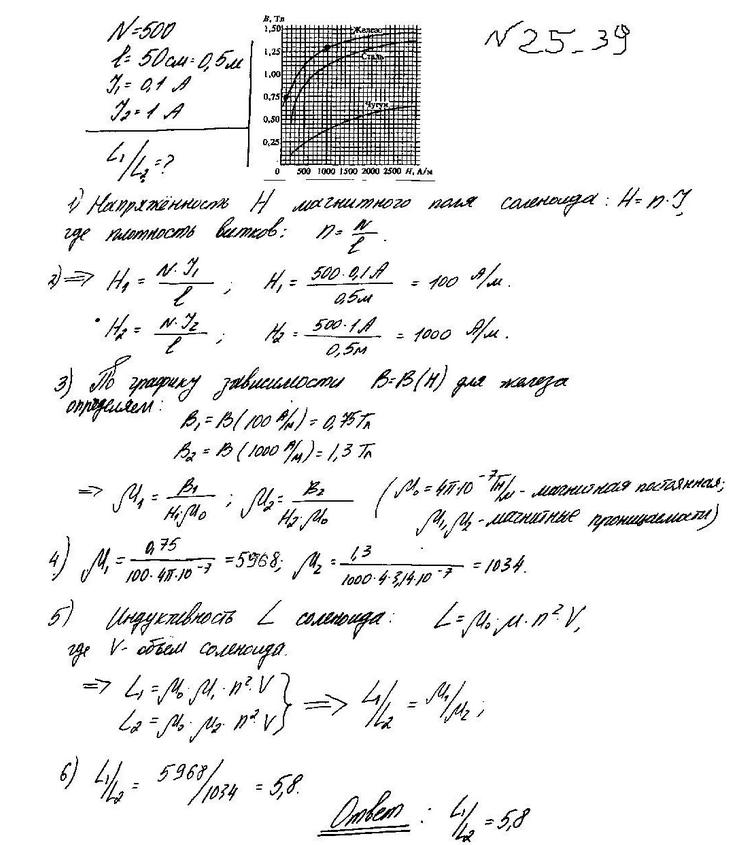 N=500
ℓ= 50см=0,5м
J₁= 0,1 А
J₂= 1 А
L₁/L₂=?
B, Тл
1,50
1,25
1,00
0,75
0,50
0,25
0
500 1000 1500 2000 2500 H, А/м
Железо
Сталь
Чугун
N 25_39
1) Напряжённость H магнитного поля соленоида: H= n·J,
где плотность витков: n= N/ℓ.
2) ⇒ H₁ = N·J₁/ℓ ; H₁ = 500·0,1А/0,5м = 100 А/м.
H₂ = N·J₂/ℓ ; H₂ = 500·1А/0,5м = 1000 А/м.
3) По графику зависимости B=B(H) для железа
определяем:
B₁ = B(100 А/м) = 0,75Тл
B₂ = B(1000 А/м) = 1,3 Тл
⇒ μ₁ = B₁/H₁·μ₀ ; μ₂ = B₂/H₂·μ₀ (μ₀ = 4π·10⁻⁷ Гн/м - магнитная постоянная;
μ₁, μ₂ - магнитные проницаемости)
4) μ₁ = 0,75/100·4π·10⁻⁷ = 5968; μ₂ = 1,3/1000·4·3,14·10⁻⁷ = 1034.
5) Индуктивность L соленоида: L= μ₀·μ·n²·V,
где V- объём соленоида.
⇒ L₁ = μ₀·μ₁·n²·V
L₂ = μ₀·μ₂·n²·V } ⇒ L₁/L₂ = μ₁/μ₂ ;
6) L₁/L₂ = 5968/1034 = 5,8.
Ответ : L₁/L₂ = 5,8